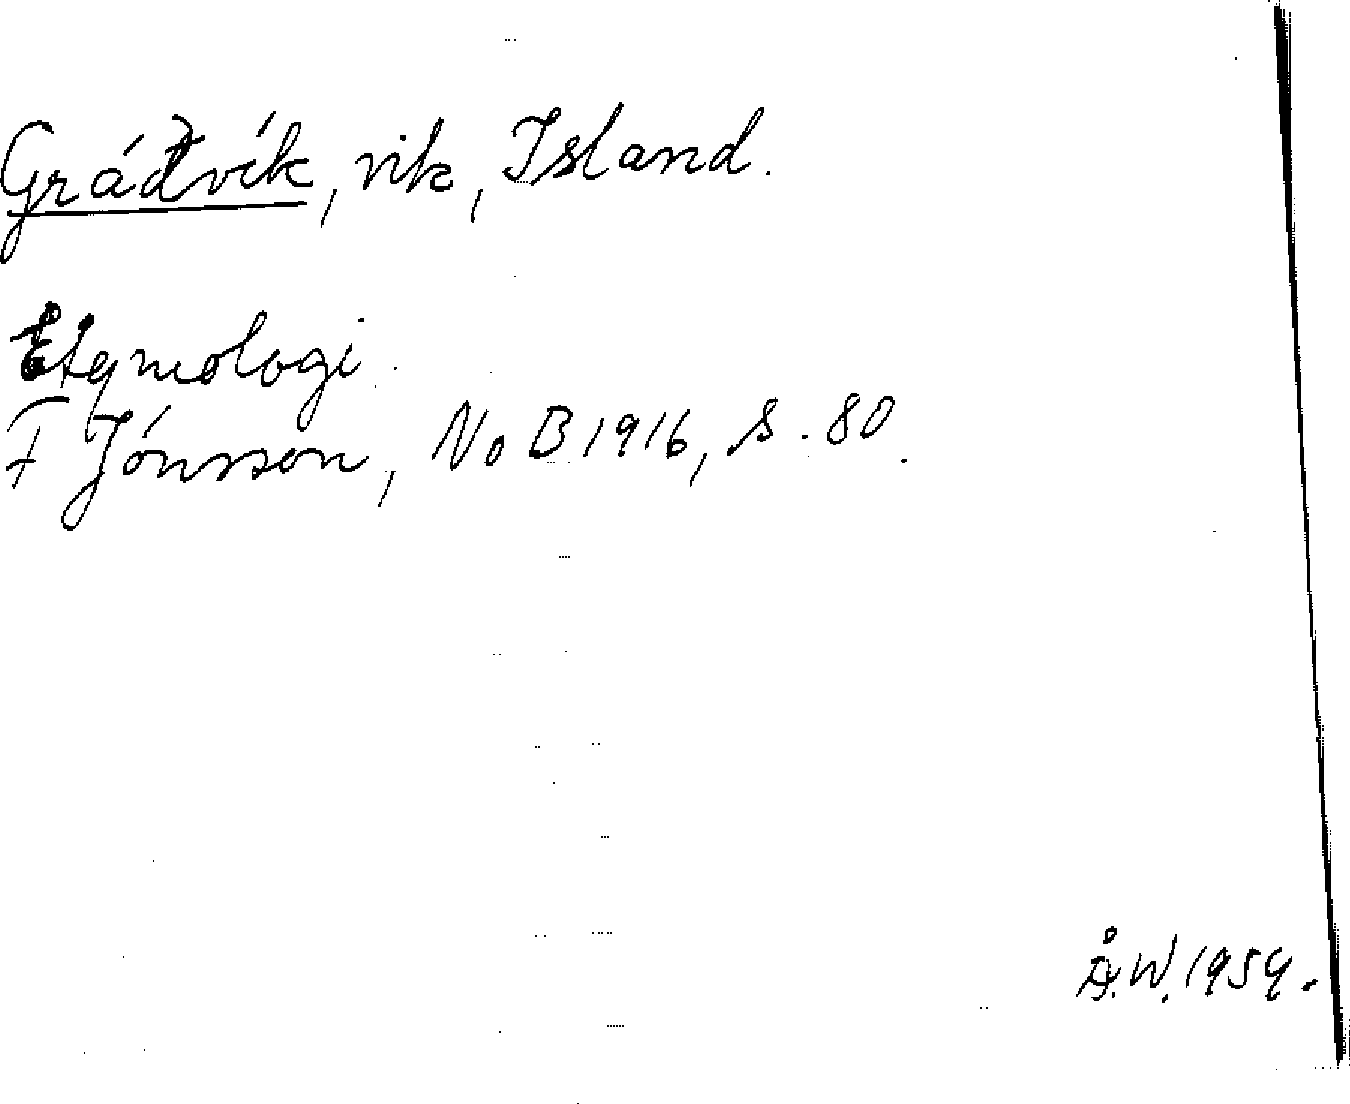 Gráðvík, vik, Island.
Etymologi.
F Jónsson, NoB 1916, s. 80.
Å.W. 1959.